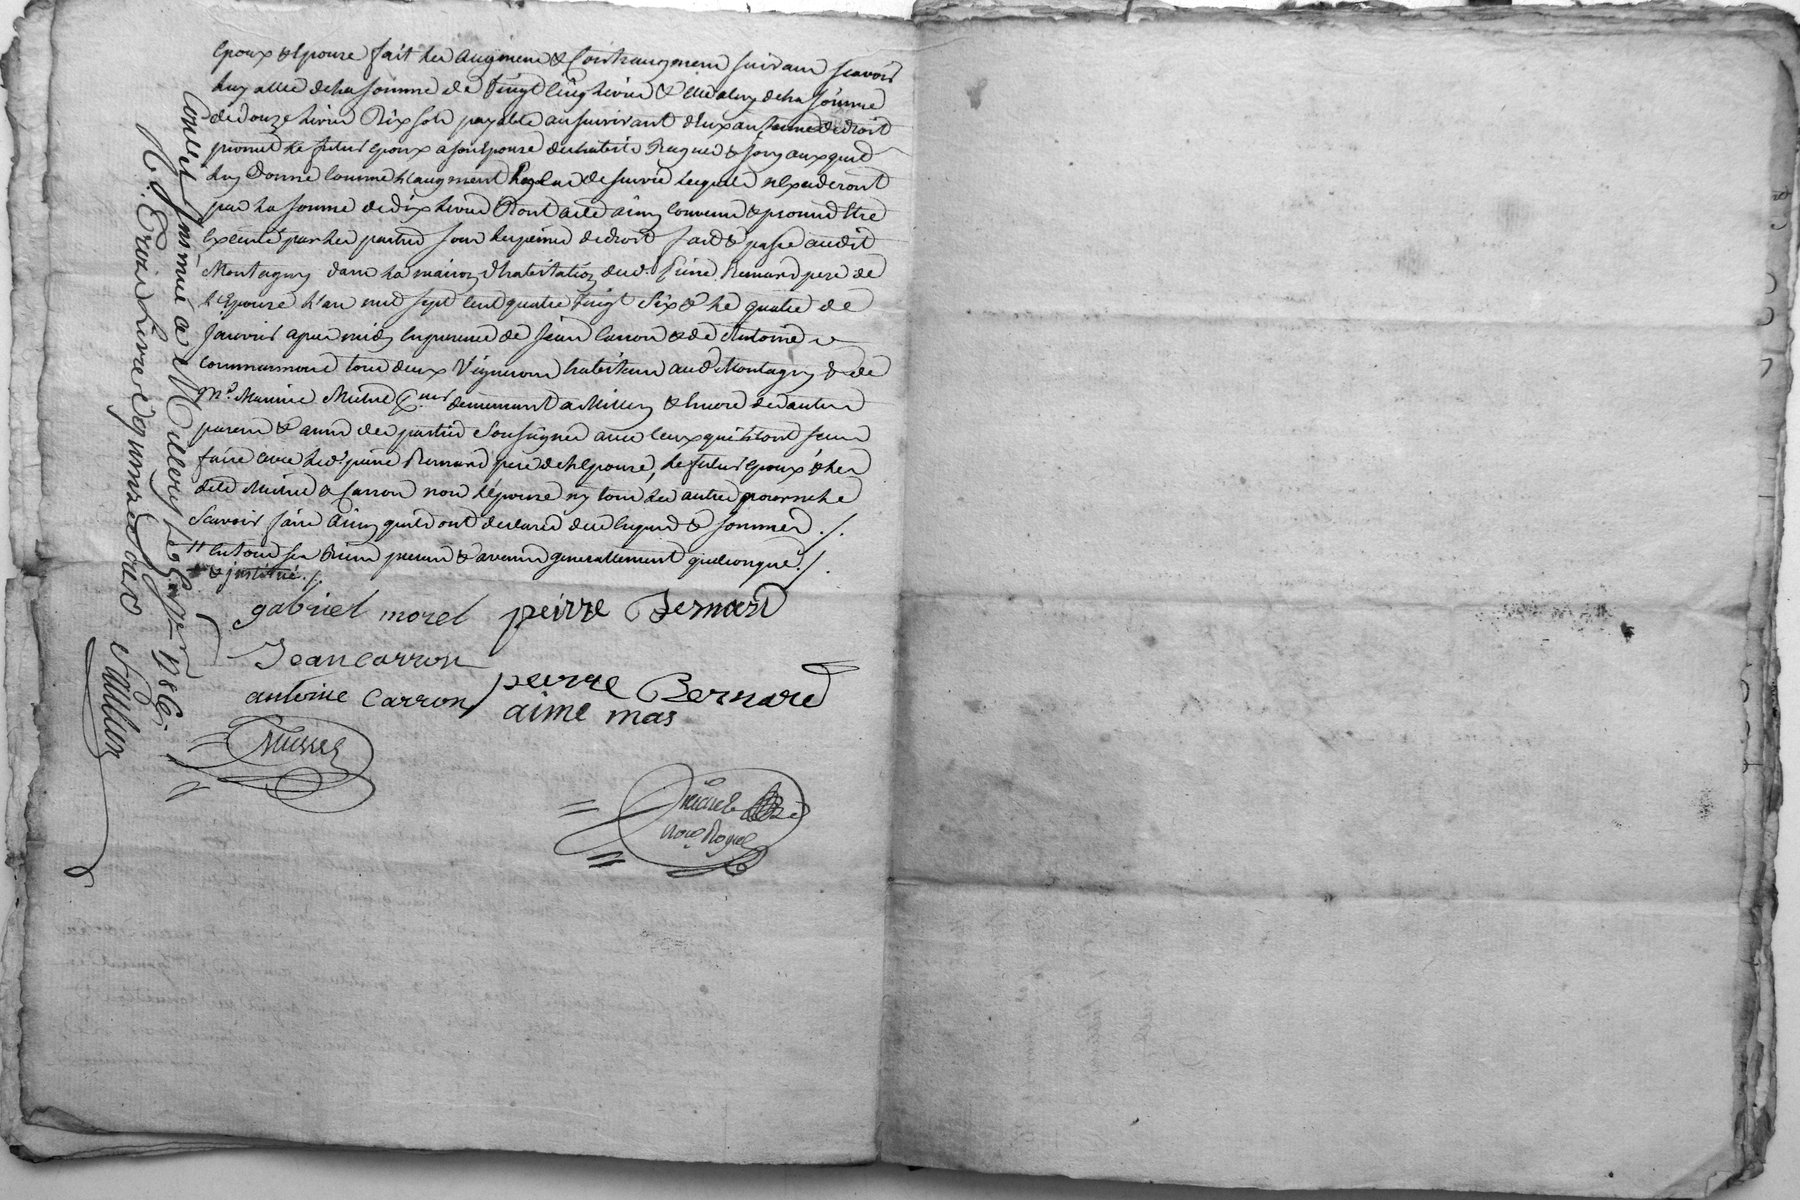 Epoux & Epouse fait les augmens & Contraugmens suivans scavoir
luy a elle de la somme de Vingt Cinq livres & elle a luy de la somme
de douze livres Dix sols payable au survivant d'eux aux termes de droit
promet le futur Epoux a son Epouse des habits Bagues & joyaux qu'il
luy Donne Comme l'augment En Cas de survie lesquels n'Excederont
pas la somme de dix livres Dont a été ainsy Convenu & promis Etre
Executé par les parties sous les peines de droit fait & passé audit
Montagny dans la maison d'habitation dud. pierre Bernard pere de
l'Epouse l'an mil sept cent quatre Vingt Six & le quatre de
Janvier apres midy En presence de Jean Carron & de Antoine
tous deux Vignerons habitans aud. Montagny & de
Me. demeurant a Millery & Encore des autres
parens & amis des parties Soussignés avec Ceux qui l'ont sceu
faire avec led. pierre Bernard pere de l'Epouse, le futur Epoux & les
dits & Carron non l'épouse ny tous les autres pour ne le
Scavoir faire Ainsy qu'ils ont declarés de ce Enquis & sommés ./.
// En tous ses Biens presens & avenir generallement quelconque ./.
& justitué ./.
gabriel morel peirre Bernard
Jean carron
peirre Bernard
antoine carron
aime mas
Notre Royal
Conllé Insinué a Millery le 1786.
R. Trois livres quinze sols